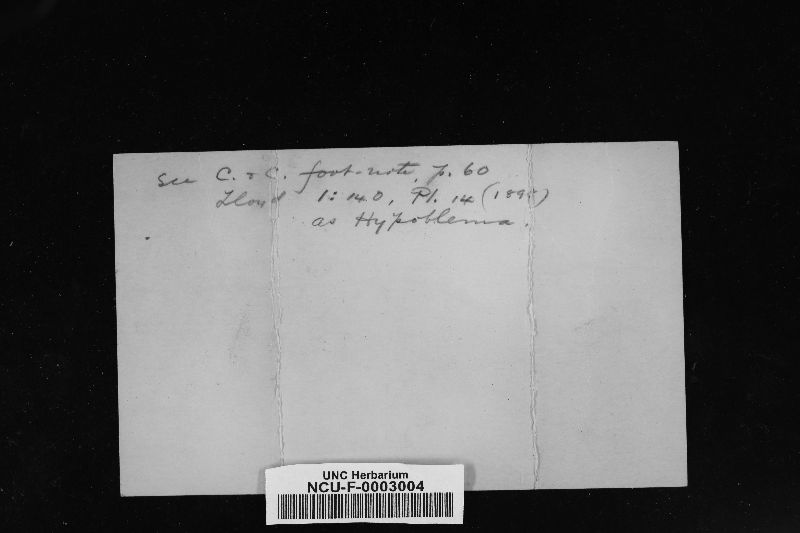 See C. & C. foot-note, p. 60
Lloyd 1: 140, Pl. 14
as Hypoblema.
UNC Herbarium
NCU-F-0003004